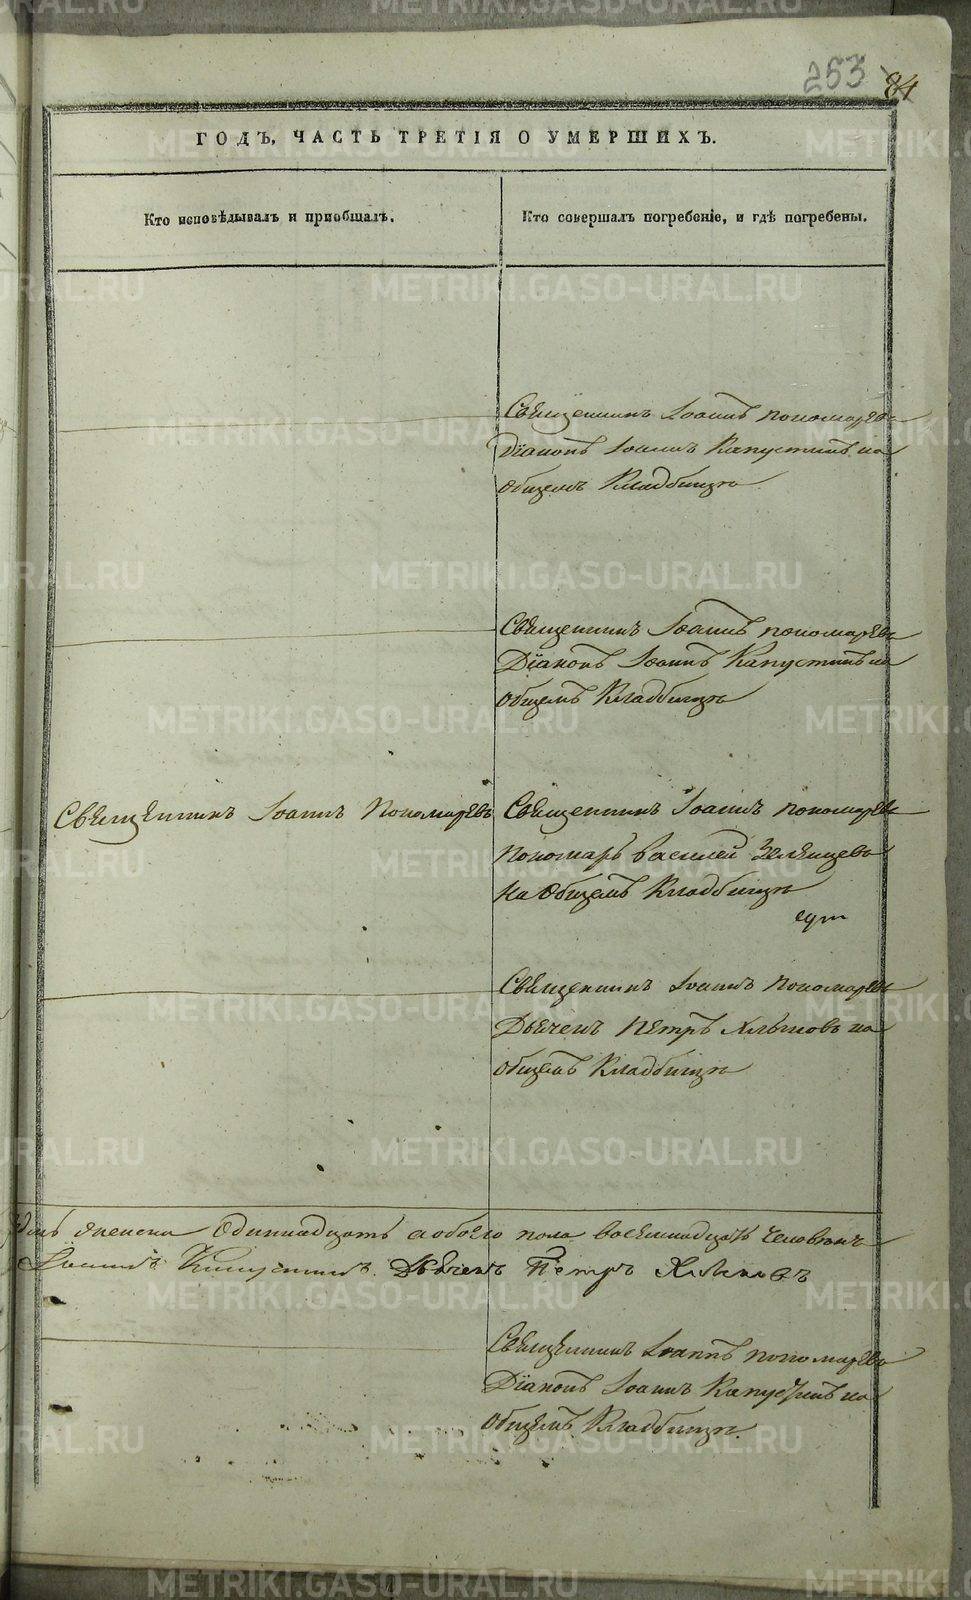 253 84
ГОДЪ, ЧАСТЬ ТРЕТІЯ О УМЕРШИХЪ.
Кто исповѣдывалъ и пріобщалъ.
Кто совершалъ погребеніе, и гдѣ погребены.
Священникъ Іоаннъ Пономаревъ
Діаконъ Іоаннъ Капустинъ на
общемъ Кладбищѣ
Священникъ Іоаннъ Пономаревъ
Діаконъ Іоаннъ Капустинъ на
общемъ Кладбищѣ
Священникъ Іоаннъ Пономаревъ
Священникъ Іоаннъ Пономаревъ
Пономарь Василей
на общемъ Кладбищѣ
Священникъ Іоаннъ Пономаревъ
Дьячекъ Петръ Хлыновъ на
общемъ Кладбищѣ
женска одиннадцать а обоего пола восемнадцать человѣкъ
Іоаннъ Капустинъ Дьячекъ Петръ Хлыновъ
Священникъ Іоаннъ Пономаревъ
Діаконъ Іоаннъ Капустинъ на
общемъ Кладбищѣ
METRIKI.GASO-URAL.RU